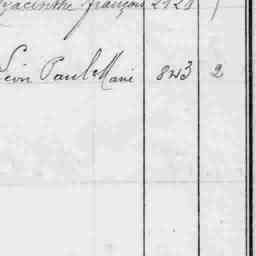 Hyacinthe françois 2121 1
Léon Paul Marie 843 2